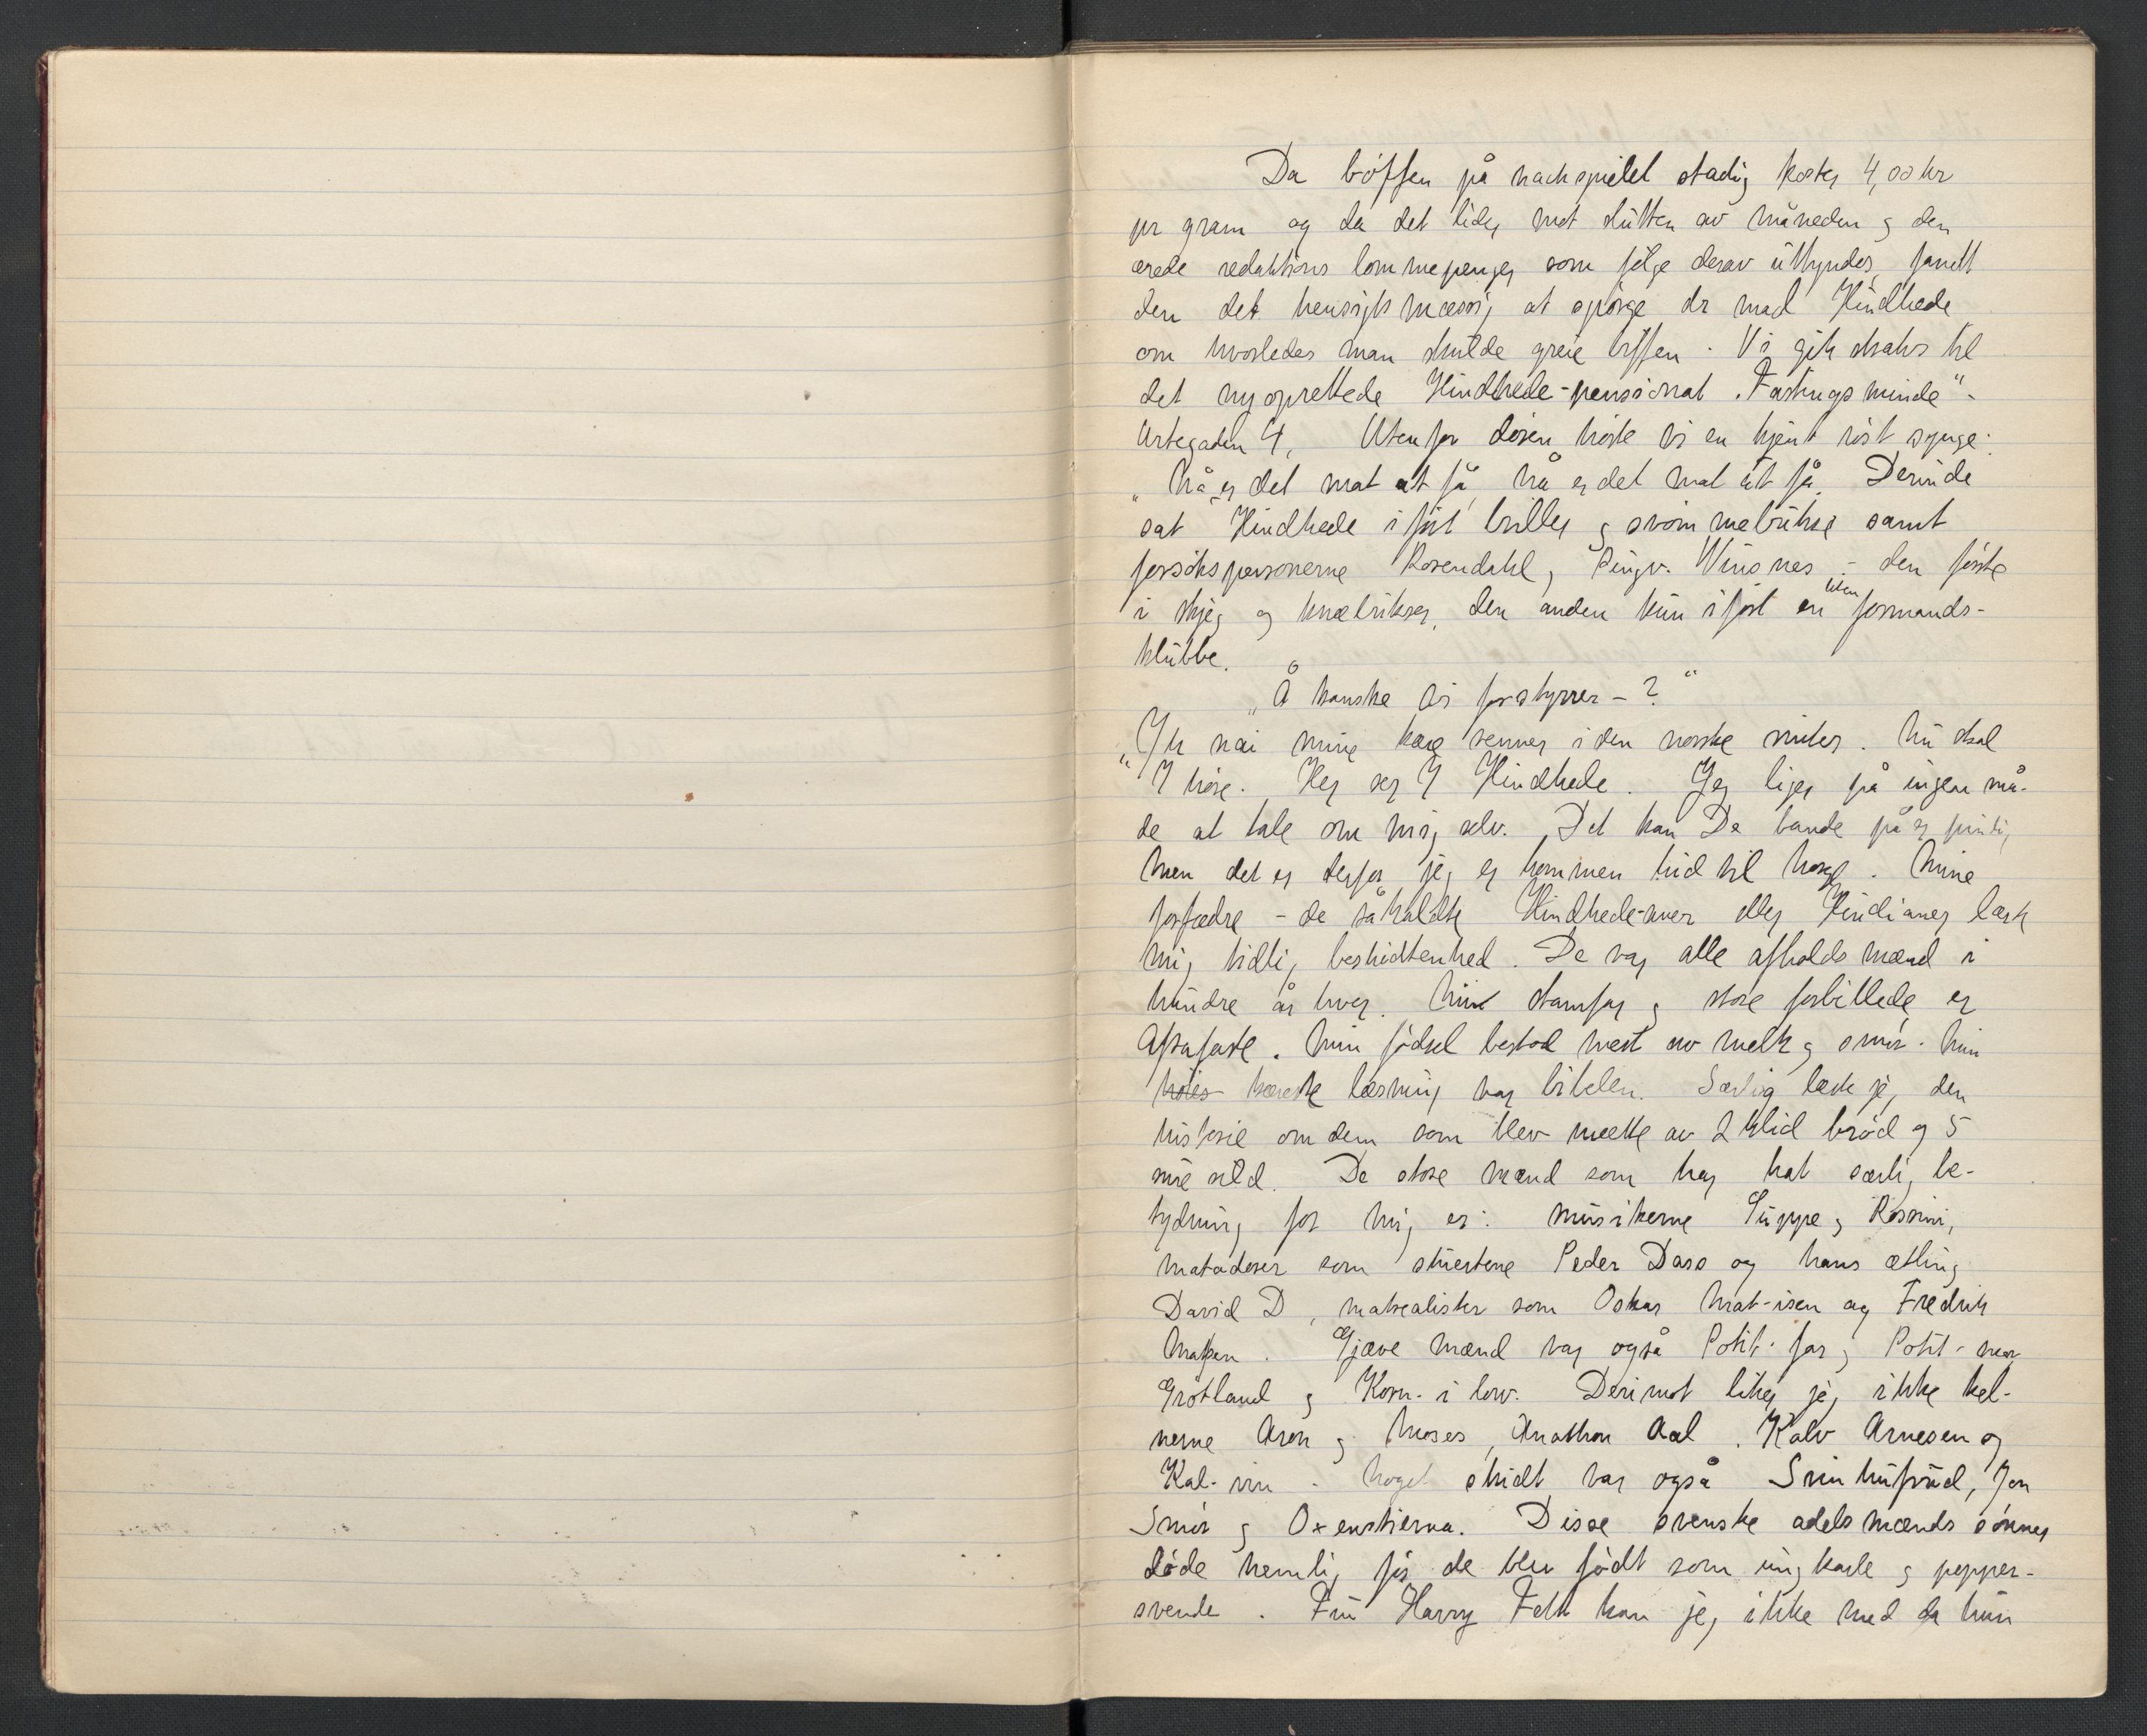 Da böffen på nachspielet stadig koster 4,00 kr
pr gram og da det lider mot slutten av måneden og den
ærede redaktions lommepenger som følge derav uttyndes, fandt
den det hensigtsmæssig at spørge dr mad Hindhede
om hvorledes man skulde greie biffen. Vi gik straks til
det nyoprettede Hindhede-pensionat "Fastings minde"-
Urtegaden 4. Utenfor døren hørte vi en kjent røst synge:
"Nå er det mat at få, nå er det mat at få. Derinde
sat Hindhede iført briller og svømmebukse samt
forsøkspersonerne Rosendahl og Ringv. Winsnes - den første
i skjeg og knæbukser, den anden kun iført en liten formands-
klubbe.
"Å kanske vi forstyrrer - ?"
"Ih nai mine kære venner i den norske vinter. Nu skal
I høre. Her ser I Hindhede. Jeg liger på ingen må-
de at tale om mig selv. Det kan De bande på
men det er derfor jeg er kommen hid til Norge. Mine
forfædre - de såkaldte Hindhede-aner eller Hindianer lærte
mig tidlig beskidtenhed. De var alle afholdsmænd i
hundre år hver. Min stamfar og store forbillede er
Afrafaste. Min fødsel bestod mest av melk og smør. Min
høies kæreste læsning var bibelen. Særlig læste jeg den
historie om dem som blev mætte av 2 klid brød og 5
sure sild. De store mænd som har hat særlig be-
tydning for mig er: musikerne Suppe og Rossini,
matadorer som skuestene Peder Dass og hans ætling
David D, matrealister som Oskar Mat-isen og Fredrik
Matsen. Gjæve mænd var også Potit-far og Potit-mor
Grøtland og Korn-i low. Derimot liker jeg ikke kel-
nerne Aron og Moses, Anathon Aal. Kalv Arnesen og
Kal-vin. Noget skidt var også Svinhufvud, Jon
Smør og Oxenstierna. Disse svenske adelsmænds sønner
døde nemlig før de blev født som ungkarle og pepper-
svende. Fru Harry Fett kan jeg ikke med da hun